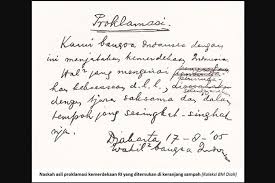 Proklamasi.
Kami bangsa Indonesia dengan
ini menjatakan kemerdekaan Indonesia.
Hal² jang mengenai
kekoeasaan d.l.l., diselenggarakan
dengan tjara saksama dan dalam
tempoh jang sesingkat-singkat-
nja.
Djakarta 17-8-'05
Wakil² bangsa Indonesia
Naskah asli proklamasi kemerdekaan RI yang ditemukan di keranjang sampah (Koleksi BM Diah)